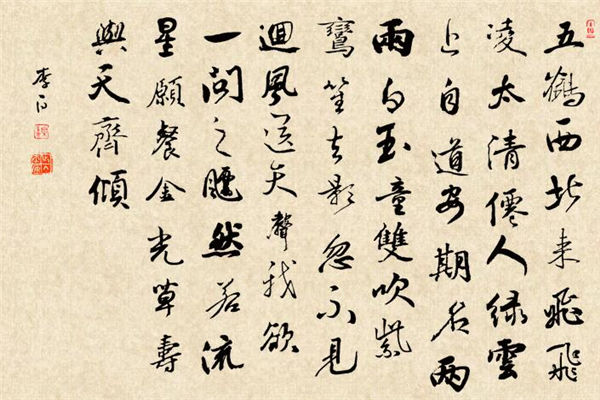 五鶴西北来飛飛
凌太清僊人绿雲
上自道安期名两
兩白玉童雙吹紫
鸞笙去影忽不見
迴風送天聲我欲
一問之飄然若流
星願餐金光草壽
與天齊傾
李白